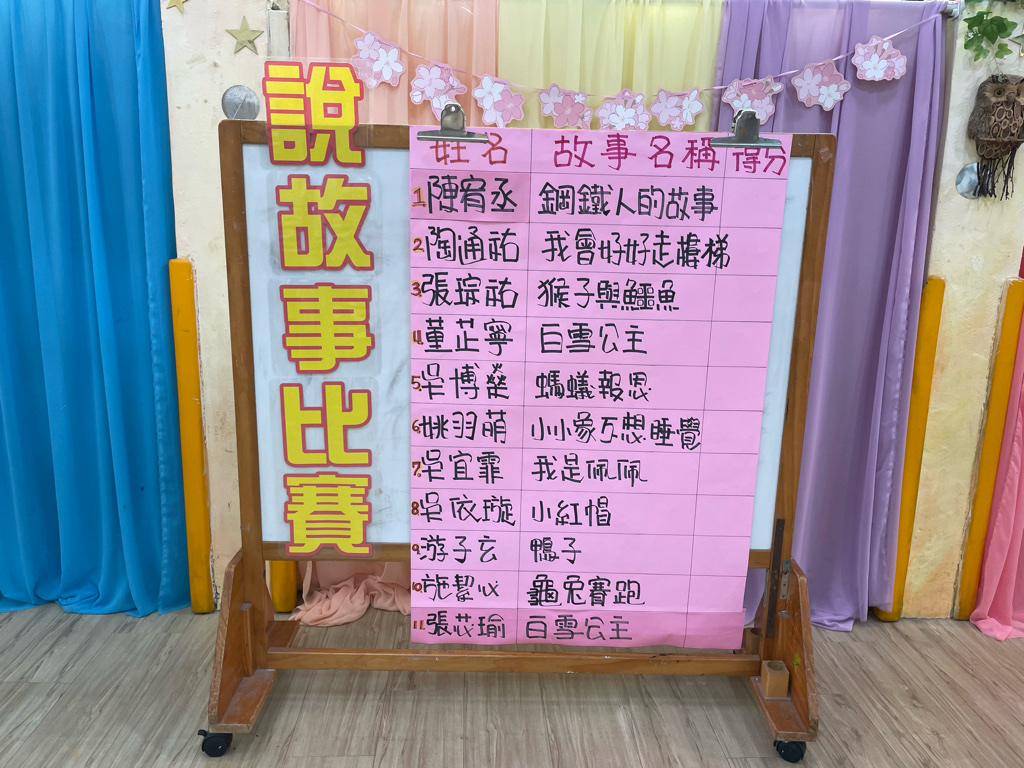 說故事比賽
姓名 故事名稱 得分
1.陳宥丞 鋼鐵人的故事
2.陶通祐 我會好好走樓梯
3.張琮祐 猴子與鱷魚
4.董芷寧 白雪公主
5.吳博燊 螞蟻報恩
6.姚羽萌 小小象不想睡覺
7.吳宜霏 我是佩佩
8.吳依璇 小紅帽
9.游子玄 鴨子
10.施絜心 龜兔賽跑
11.張芯瑜 白雪公主